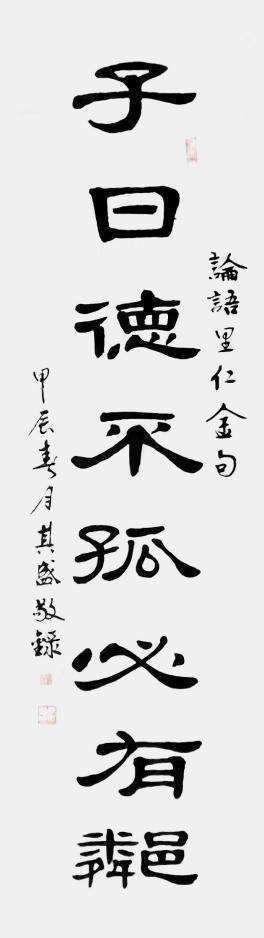 論語里仁金句
子曰德不孤必有鄰
甲辰春月其盛敬錄